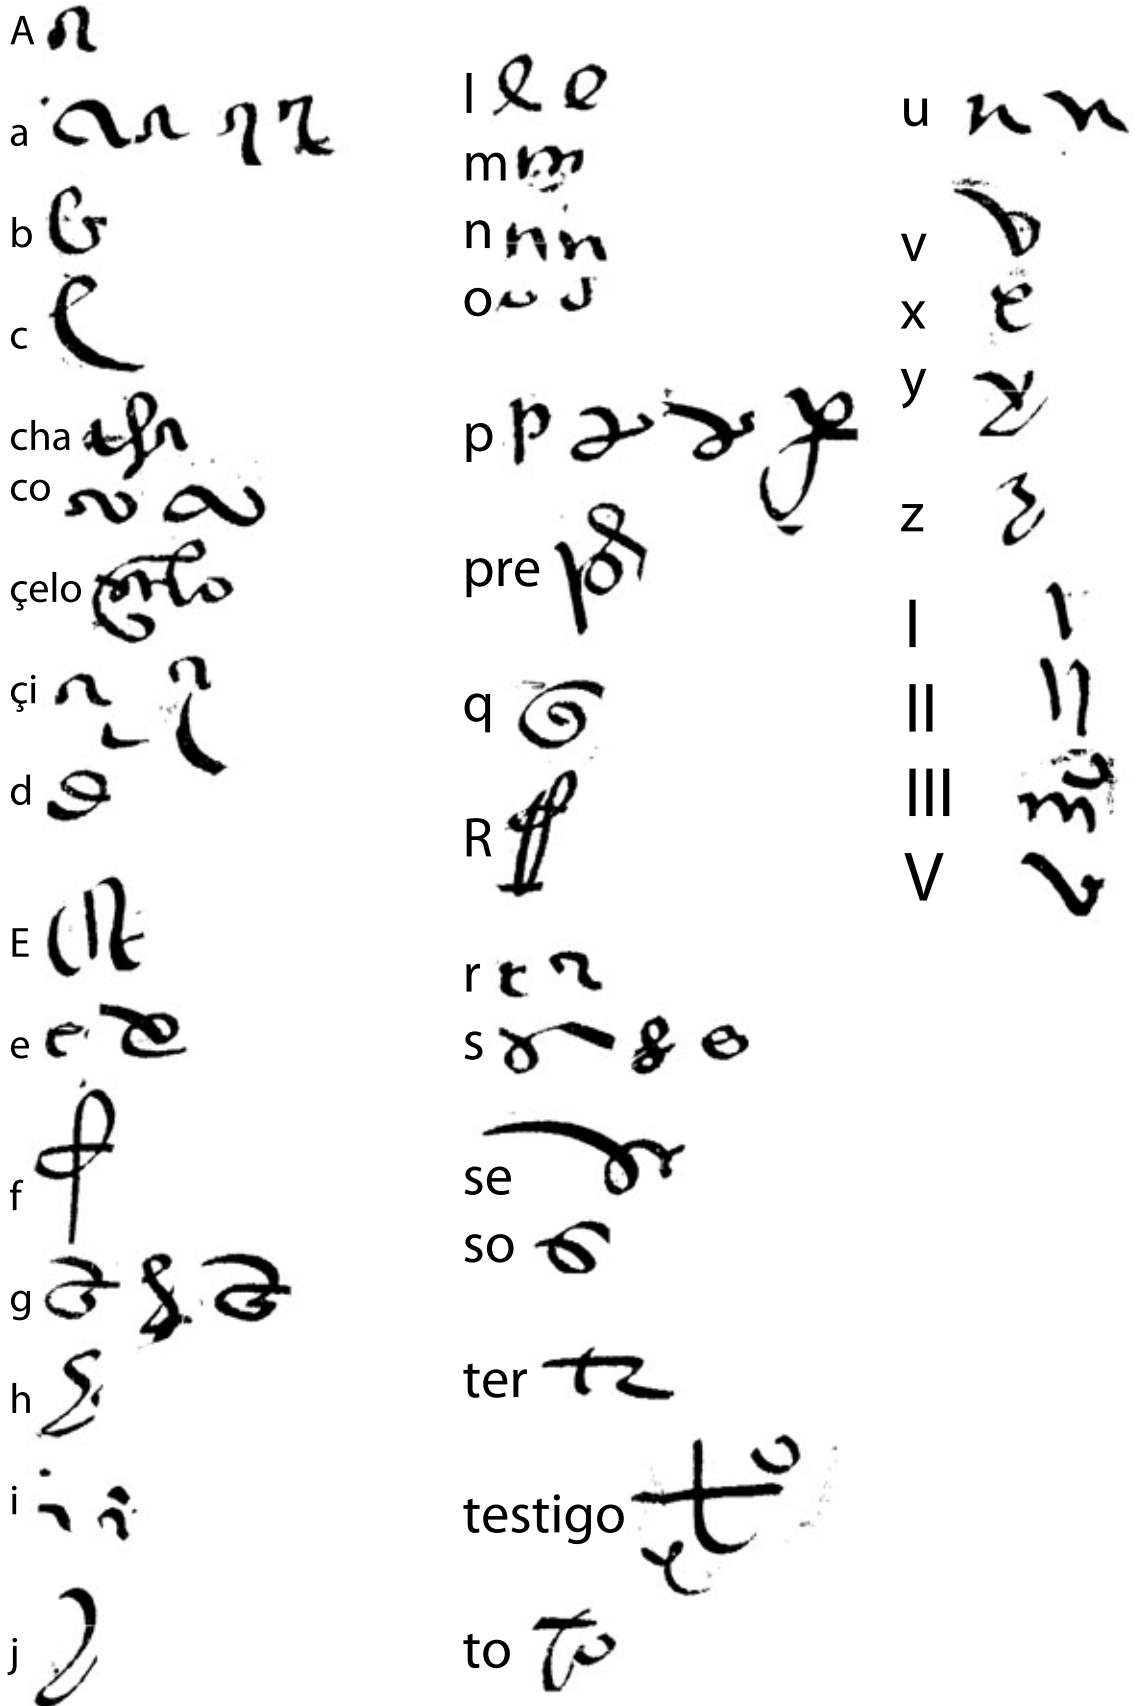 A
a
b
c
cha
co
çelo
çi
d
E
e
f
g
h
i
j
l
m
n
o
p
pre
q
R
r
s
se
so
ter
testigo
to
u
v
x
y
z
I
II
III
V